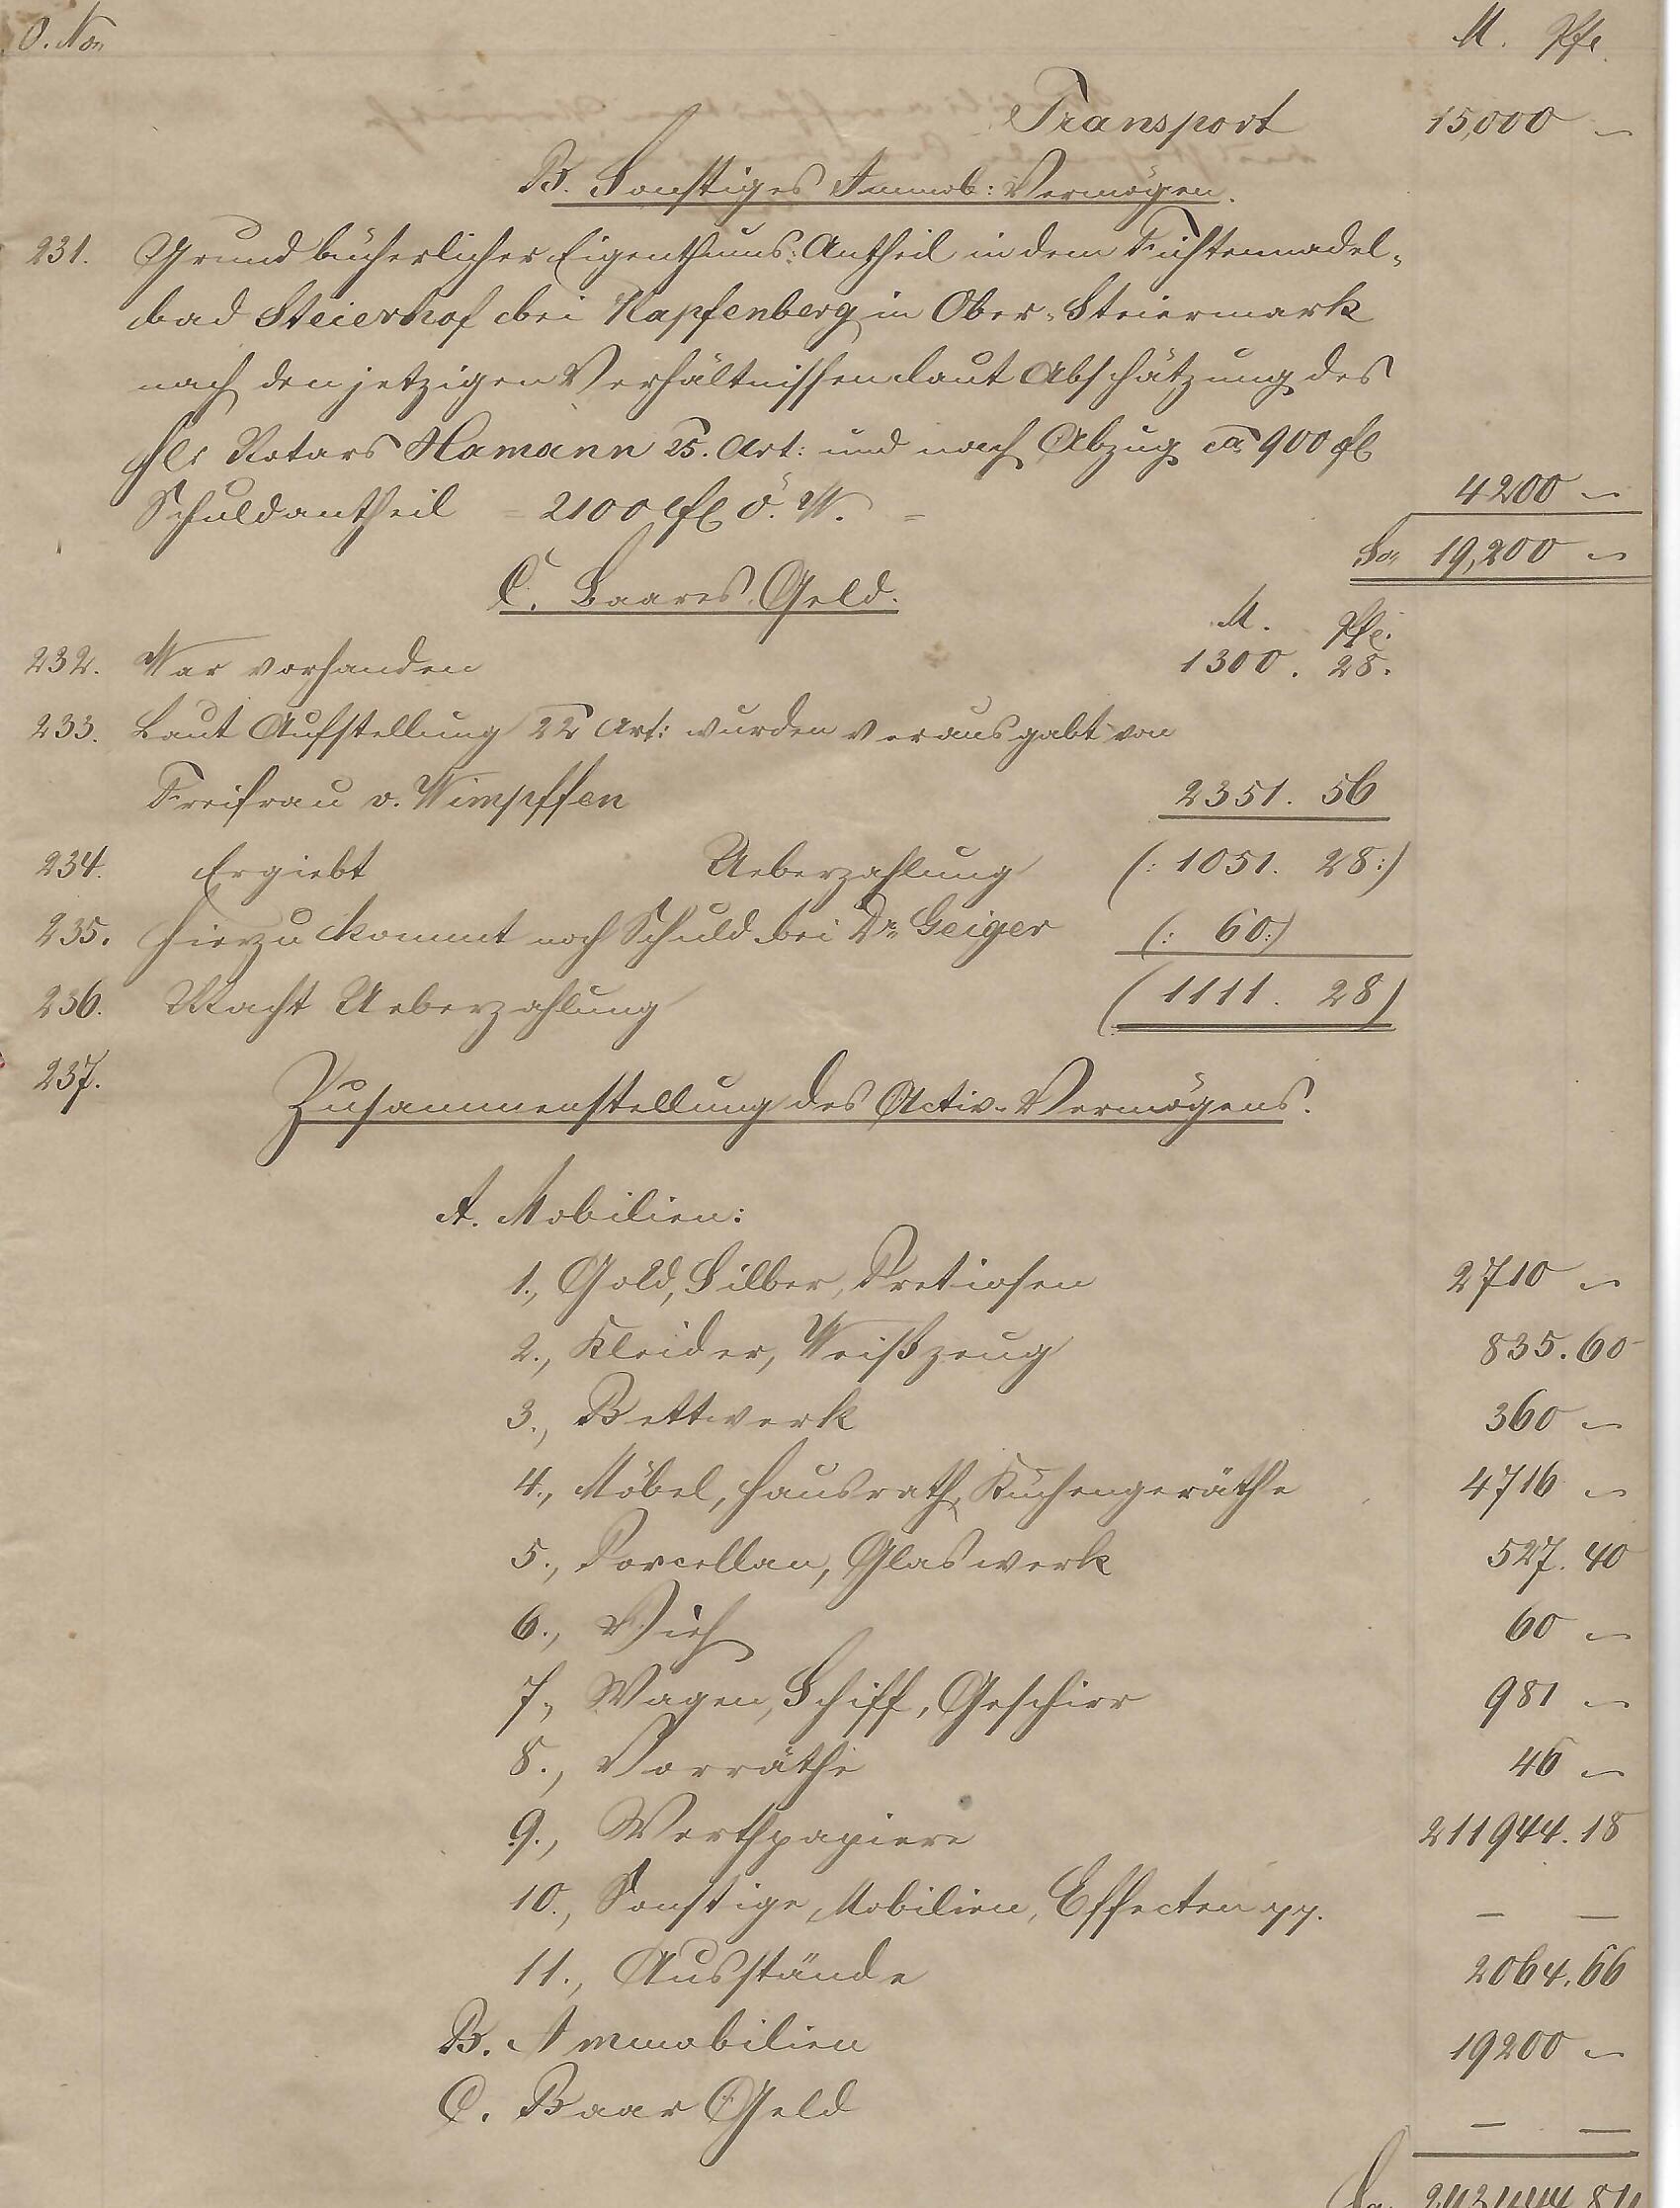 O. No. M. Pfe.
Transport 15,000 –
B. Sonstiges Immob: Vermögen.
231. Grundbücherlicher Eigenthums: Antheil in dem Fichtennadel-
bad Steierhof bei Kapfenberg in Ober-Steiermark
nach den jetzigen Verhältnissen laut Abschätzung des
Notars Hamann 25. Act: und nach Abzug ca 900 fl
Schuldantheil = 2100 fl ö. W. = 4200 –
Sa. 19,200 –
C. Baares Geld.
M. Pfe.
232. War vorhanden 1300. 28.
233. Laut Aufstellung 22 Act: wurden verausgabt von
Freifrau v. Wimpffen 2351. 56
234. Ergiebt Ueberzahlung (: 1051. 28:)
235. Hierzu kommt noch Schuld bei Dr. Geiger (: 60:)
236. Macht Ueberzahlung (1111. 28)
237. Zusammenstellung des Activ-Vermögens.
A. Mobilien:
1., Gold, Silber, Pretiosen 2710 –
2., Kleider, Weißzeug 835. 60
3., Bettwerk 360 –
4., Möbel, Hausrath, Küchengeräthe 4716 –
5., Porcellan, Glaswerk 527. 40
6., Vieh 60 –
7., Wagen, Schiff, Geschirr 981 –
8., Vorräthe 46 –
9., Werthpapiere 211944. 18
10., Sonstige Mobilien, Effecten pp. – –
11., Ausstände 2064. 66
B. Immobilien 19200 –
C. Baar Geld – –
Sa.